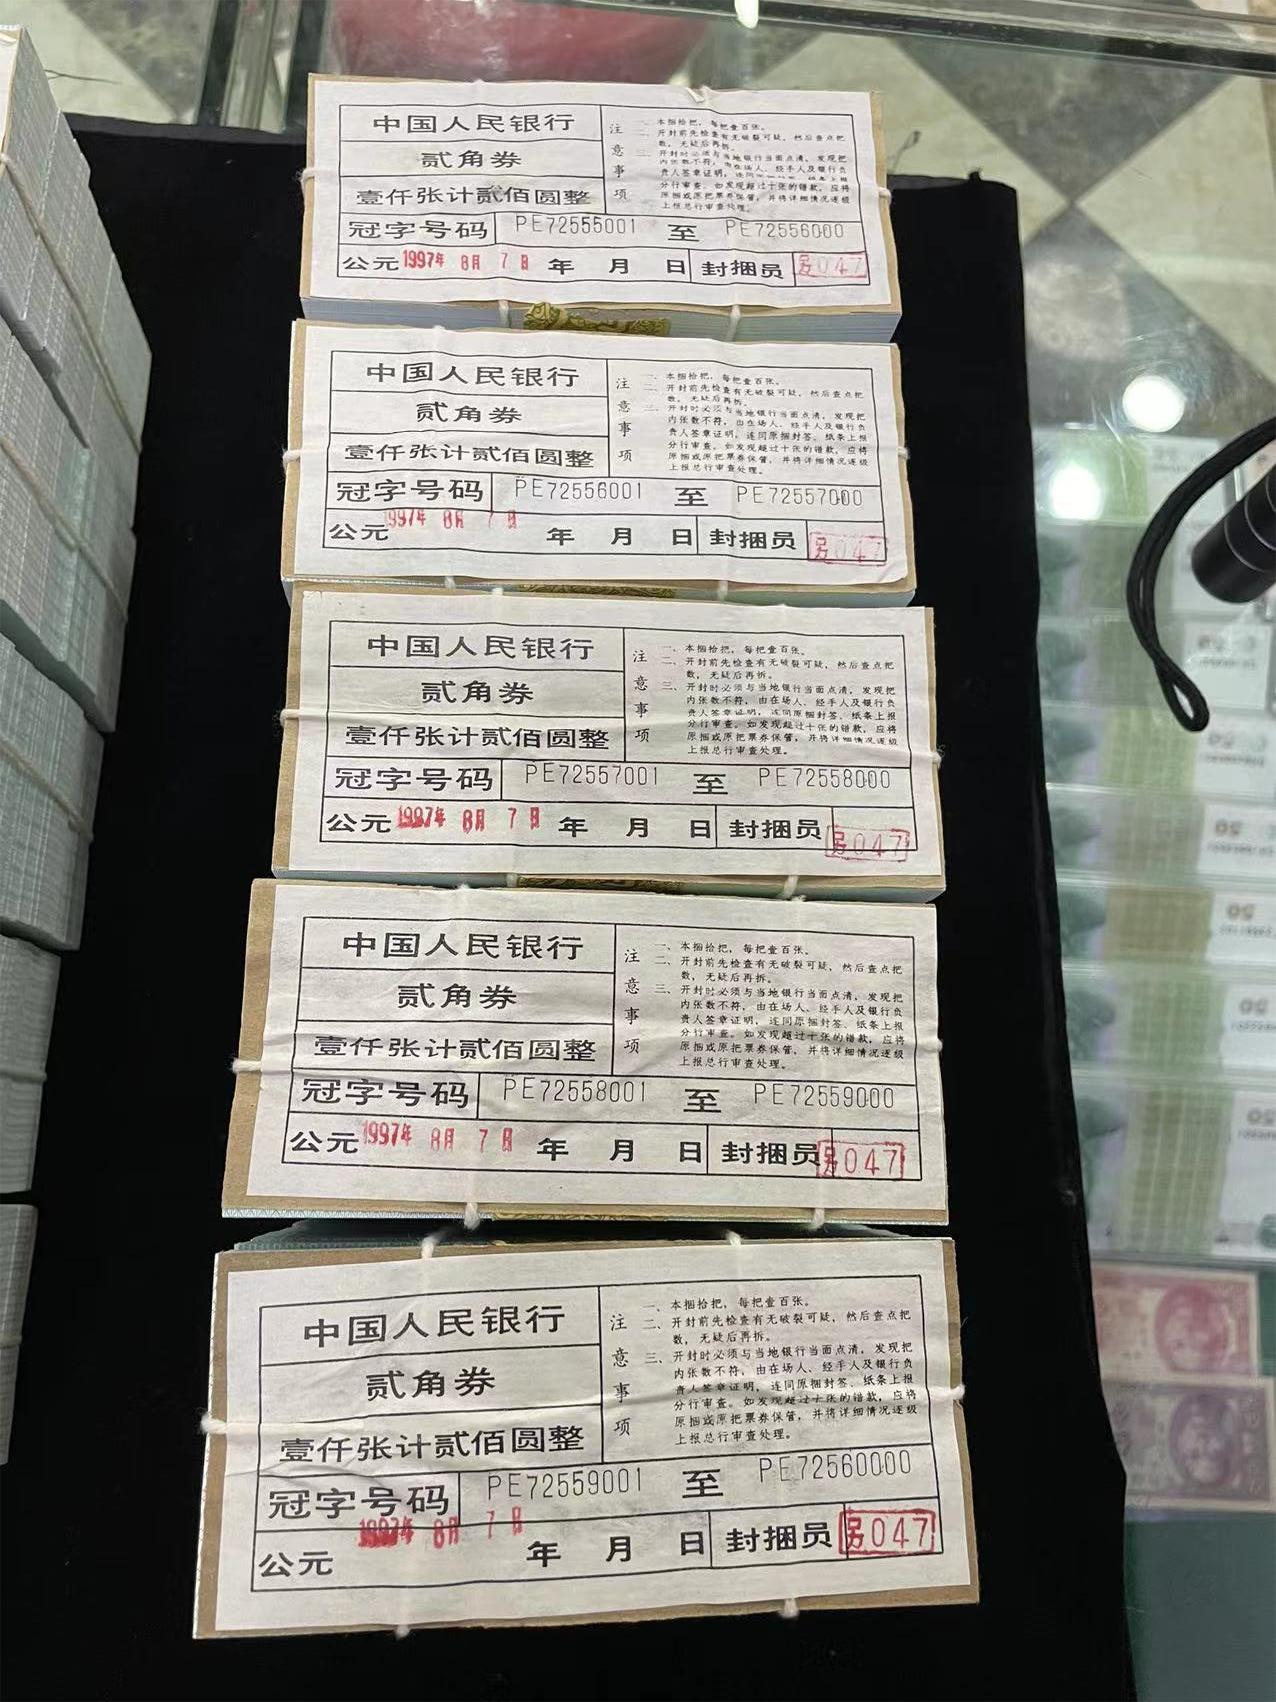 中国人民银行
贰角券
壹仟张计贰佰圆整
注意事项
一、本捆拾把，每把壹百张。
二、开封前先检查有无破裂可疑，然后查点把
数，无疑后再拆。
三、开封时必须与当地银行当面点清，发现把
内张数不符，由在场人、经手人及银行负
责人签章证明，连同原捆封签、纸条上报
分行审查。如发现超过十张的错款，应将
原捆或原把票券保管，并将详细情况逐级
上报总行审查处理。
冠字号码 PE72555001 至 PE72556000
公元 1997年 8月 7日 年 月 日 封捆员 另047
中国人民银行
贰角券
壹仟张计贰佰圆整
注意事项
一、本捆拾把，每把壹百张。
二、开封前先检查有无破裂可疑，然后查点把
数，无疑后再拆。
三、开封时必须与当地银行当面点清，发现把
内张数不符，由在场人、经手人及银行负
责人签章证明，连同原捆封签、纸条上报
分行审查。如发现超过十张的错款，应将
原捆或原把票券保管，并将详细情况逐级
上报总行审查处理。
冠字号码 PE72556001 至 PE72557000
公元 1997年 8月 7日 年 月 日 封捆员 另047
中国人民银行
贰角券
壹仟张计贰佰圆整
注意事项
一、本捆拾把，每把壹百张。
二、开封前先检查有无破裂可疑，然后查点把
数，无疑后再拆。
三、开封时必须与当地银行当面点清，发现把
内张数不符，由在场人、经手人及银行负
责人签章证明，连同原捆封签、纸条上报
分行审查。如发现超过十张的错款，应将
原捆或原把票券保管，并将详细情况逐级
上报总行审查处理。
冠字号码 PE72557001 至 PE72558000
公元 1997年 8月 7日 年 月 日 封捆员 另047
中国人民银行
贰角券
壹仟张计贰佰圆整
注意事项
一、本捆拾把，每把壹百张。
二、开封前先检查有无破裂可疑，然后查点把
数，无疑后再拆。
三、开封时必须与当地银行当面点清，发现把
内张数不符，由在场人、经手人及银行负
责人签章证明，连同原捆封签、纸条上报
分行审查。如发现超过十张的错款，应将
原捆或原把票券保管，并将详细情况逐级
上报总行审查处理。
冠字号码 PE72558001 至 PE72559000
公元 1997年 8月 7日 年 月 日 封捆员 另047
中国人民银行
贰角券
壹仟张计贰佰圆整
注意事项
一、本捆拾把，每把壹百张。
二、开封前先检查有无破裂可疑，然后查点把
数，无疑后再拆。
三、开封时必须与当地银行当面点清，发现把
内张数不符，由在场人、经手人及银行负
责人签章证明，连同原捆封签、纸条上报
分行审查。如发现超过十张的错款，应将
原捆或原把票券保管，并将详细情况逐级
上报总行审查处理。
冠字号码 PE72559001 至 PE72560000
公元 1997年 8月 7日 年 月 日 封捆员 另047
50
50
50
50
50